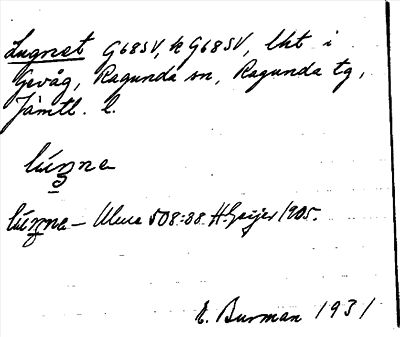 Lugnet G68SV, k G68SV, lht i
Gevåg, Ragunda sn, Ragunda tg,
Jämtl. l.
lúŋne
lúŋne – Ulma 508:88 H. Geijer 1905.
E. Burman 1931